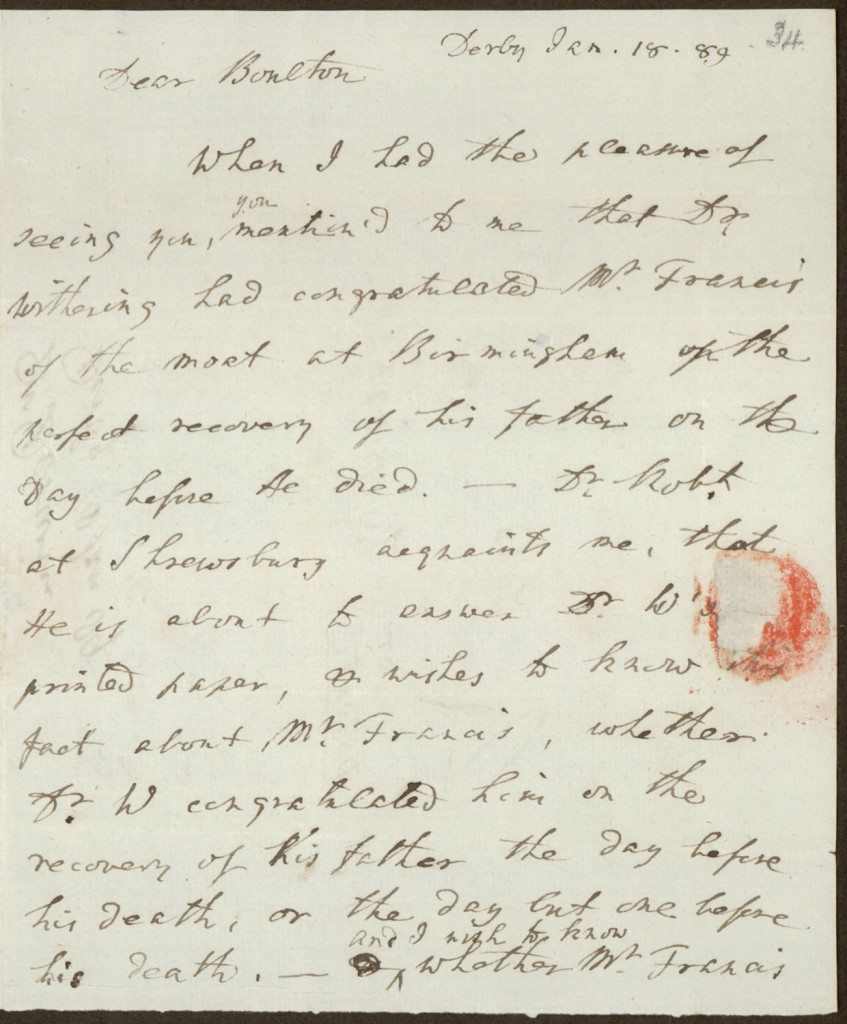 34
Derby Jan. 18. 89
Dear Boulton
When I had the pleasure of
you
seeing you, mention'd to me that Dr.
Withering had congratulated Mr. Francis
of the moat at Birmingham on the
perfect recovery of his father on the
Day before He died. — Dr. Robt.
at Shrewsbury acquaints me, that
He is about to answer Dr. W's
printed paper, & wishes to know this
fact about Mr. Francis, whether
Dr. W congratulated him on the
recovery of his father the day before
his death, or the day but one before
and I wish to know
his death. — whether Mr. Francis